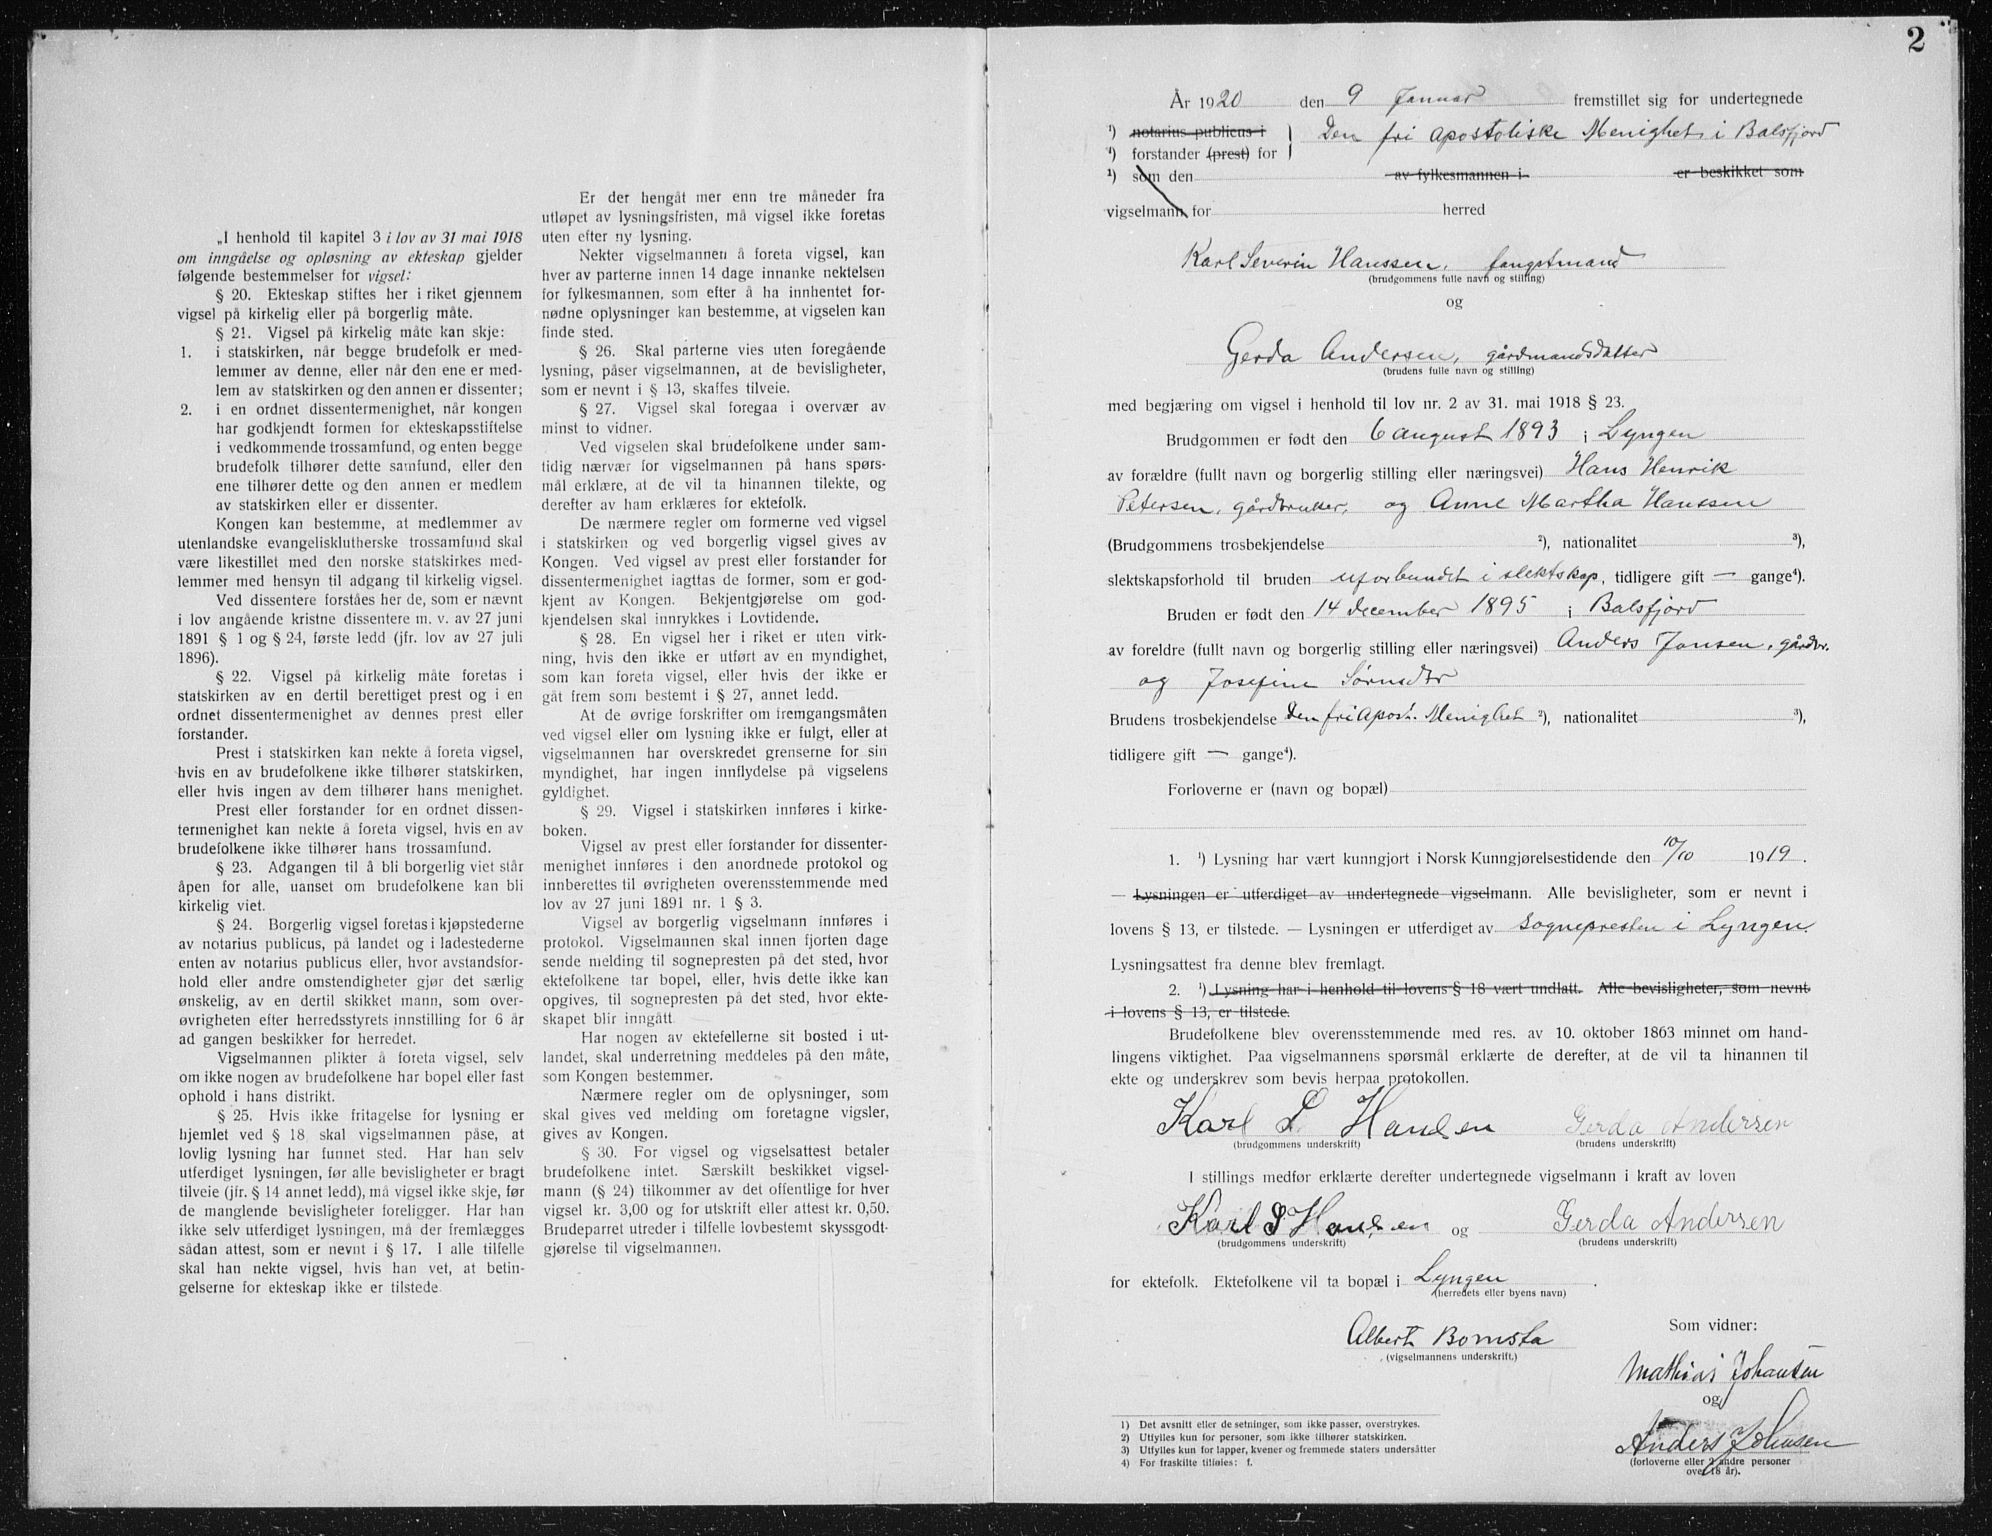 „I henhold til kapitel 3 i lov av 31 mai 1918
om inngåelse og opløsning av ekteskap gjelder
følgende bestemmelser for vigsel:
§ 20. Ekteskap stiftes her i riket gjennem
vigsel på kirkelig eller på borgerlig måte.
§ 21. Vigsel på kirkelig måte kan skje:
1. i statskirken, når begge brudefolk er med-
lemmer av denne, eller når den ene er med-
lem av statskirken og den annen er dissenter;
2. i en ordnet dissentermenighet, når kongen
har godkjendt formen for ekteskapsstiftelse
i vedkommende trossamfund, og enten begge
brudefolk tilhører dette samfund, eller den
ene tilhører dette og den annen er medlem
av statskirken eller er dissenter.
Kongen kan bestemme, at medlemmer av
utenlandske evangelisklutherske trossamfund skal
være likestillet med den norske statskirkes med-
lemmer med hensyn til adgang til kirkelig vigsel.
Ved dissentere forståes her de, som er nævnt
i lov angående kristne dissentere m. v. av 27 juni
1891 § 1 og § 24, første ledd (jfr. lov av 27 juli
1896).
§ 22. Vigsel på kirkelig måte foretas i
statskirken av en dertil berettiget prest og i en
ordnet dissentermenighet av dennes prest eller
forstander.
Prest i statskirken kan nekte å foreta vigsel,
hvis en av brudefolkene ikke tilhører statskirken,
eller hvis ingen av dem tilhører hans menighet.
Prest eller forstander for en ordnet dissen-
termenighet kan nekte å foreta vigsel, hvis en av
brudefolkene ikke tilhører hans trossamfund.
§ 23. Adgangen til å bli borgerlig viet står
åpen for alle, uanset om brudefolkene kan bli
kirkelig viet.
§ 24. Borgerlig vigsel foretas i kjøpstederne
av notarius publicus, på landet og i ladestederne
enten av notarius publicus eller, hvor avstandsfor-
hold eller andre omstendigheter gjør det særlig
ønskelig, av en dertil skikket mann, som over-
øvrigheten efter herredsstyrets innstilling for 6 år
ad gangen beskikker for herredet.
Vigselmannen plikter å foreta vigsel, selv
om ikke nogen av brudefolkene har bopel eller fast
ophold i hans distrikt.
§ 25. Hvis ikke fritagelse for lysning er
hjemlet ved § 18, skal vigselmannen påse, at
lovlig lysning har funnet sted. Har han selv
utferdiget lysningen, før alle bevisligheter er bragt
tilveie (jfr. § 14 annet ledd), må vigsel ikke skje, før
de manglende bevisligheter foreligger. Har han
ikke selv utferdiget lysningen, må der fremlægges
sådan attest, som er nevnt i § 17. I alle tilfelle
skal han nekte vigsel, hvis han vet, at betin-
gelserne for ekteskap ikke er tilstede.
Er der hengåt mer enn tre måneder fra
utløpet av lysningsfristen, må vigsel ikke foretas
uten efter ny lysning.
Nekter vigselmannen å foreta vigsel, kan
hver av parterne innen 14 dage innanke nektelsen
for fylkesmannen, som efter å ha innhentet for-
nødne oplysninger kan bestemme, at vigselen kan
finde sted.
§ 26. Skal parterne vies uten foregående
lysning, påser vigselmannen, at de bevisligheter,
som er nevnt i § 13, skaffes tilveie.
§ 27. Vigsel skal foregaa i overvær av
minst to vidner.
Ved vigselen skal brudefolkene under sam-
tidig nærvær for vigselmannen på hans spørs-
mål erklære, at de vil ta hinannen tilekte, og
derefter av ham erklæres for ektefolk.
De nærmere regler om formerne ved vigsel
i statskirken og ved borgerlig vigsel gives av
Kongen. Ved vigsel av prest eller forstander for
dissentermenighet iagttas de former, som er god-
kjent av Kongen. Bekjentgjørelse om god-
kjendelsen skal innrykkes i Lovtidende.
§ 28. En vigsel her i riket er uten virk-
ning, hvis den ikke er utført av en myndighet,
som kan foreta vigsel, eller hvis der ikke er
gåt frem som bestemt i § 27, annet ledd.
At de øvrige forskrifter om fremgangsmåten
ved vigsel eller om lysning ikke er fulgt, eller at
vigselmannen har overskredet grenserne for sin
myndighet, har ingen innflydelse på vigselens
gyldighet.
§ 29. Vigsel i statskirken innføres i kirke-
boken.
Vigsel av prest eller forstander for dissenter-
menighet innføres i den anordnede protokol og
innberettes til øvrigheten overensstemmende med
lov av 27 juni 1891 nr. 1 § 3.
Vigsel av borgerlig vigselmann innføres i
protokol. Vigselmannen skal innen fjorten dage
sende melding til sognepresten på det sted, hvor
ektefolkene tar bopel, eller, hvis dette ikke kan
opgives, til sognepresten på det sted, hvor ekte-
skapet blir inngått.
Har nogen av ektefellerne sit bosted i ut-
landet, skal underretning meddeles på den måte,
som Kongen bestemmer.
Nærmere regler om de oplysninger, som
skal gives ved melding om foretagne vigsler,
gives av Kongen.
§ 30. For vigsel og vigselsattest betaler
brudefolkene intet. Særskilt beskikket vigsel-
mann (§ 24) tilkommer av det offentlige for hver
vigsel kr. 3,00 og for utskrift eller attest kr. 0,50.
Brudeparret utreder i tilfelle lovbestemt skyssgodt-
gjørelse til vigselmannen.
2
År 1920 den 9 Januar fremstillet sig for undertegnede
¹) notarius publicus i } Den fri apostoliske Menighet i Balsfjord
¹) forstander (prest) for
¹) som den av fylkesmannen i er beskikket som
vigselmann for herred
Karl Severin Hanssen, fangstmand
(brudgommens fulle navn og stilling)
og
Gerda Andersen, gårdmandsdatter
(brudens fulle navn og stilling)
med begjæring om vigsel i henhold til lov nr. 2 av 31. mai 1918 § 23.
Brudgommen er født den 6 august 1893 i Lyngen
av forældre (fullt navn og borgerlig stilling eller næringsvei) Hans Henrik
Petersen, gårdbruker, og Anne Martha Hanssen
(Brudgommens trosbekjendelse ²), nationalitet ³),
slektskapsforhold til bruden uforbundet i slektskap, tidligere gift — gange⁴).
Bruden er født den 14 december 1895 i Balsfjord
av foreldre (fullt navn og borgerlig stilling eller næringsvei) Anders Jansen, gårdbr.
og Josefine Sørnsdtr
Brudens trosbekjendelse Den fri Apost. Menighet ²), nationalitet ³),
tidligere gift — gange⁴).
Forloverne er (navn og bopæl)
1. ¹) Lysning har vært kunngjort i Norsk Kunngjørelsestidende den 10/10 1919.
— Lysningen er utferdiget av undertegnede vigselmann. Alle bevisligheter, som er nevnt i
lovens § 13, er tilstede. — Lysningen er utferdiget av sognepresten i Lyngen.
Lysningsattest fra denne blev fremlagt.
2. ¹) Lysning har i henhold til lovens § 18 vært undlatt. Alle bevisligheter, som nevnt
i lovens § 13, er tilstede.
Brudefolkene blev overensstemmende med res. av 10. oktober 1863 minnet om hand-
lingens viktighet. Paa vigselmannens spørsmål erklærte de derefter, at de vil ta hinannen til
ekte og underskrev som bevis herpaa protokollen.
Karl S Hansen Gerda Andersen
(brudgommens underskrift) (brudens underskrift)
I stillings medfør erklærte derefter undertegnede vigselmann i kraft av loven
Karl S Hansen og Gerda Andersen
(brudgommens underskrift) (brudens underskrift)
for ektefolk. Ektefolkene vil ta bopæl i Lyngen .
(herredets eller byens navn)
Albert Bomsta
(vigselmannens underskrift.)
Som vidner:
Mathias Johansen
og
Anders Johnsen
(forloverne eller 2 andre personer
over 18 år).
1) Det avsnitt eller de setninger, som ikke passer, overstrykes.
2) Utfylles kun for personer, som ikke tilhører statskirken.
3) Utfylles kun for lapper, kvener og fremmede staters undersåtter
4) For fraskilte tilføies: f.